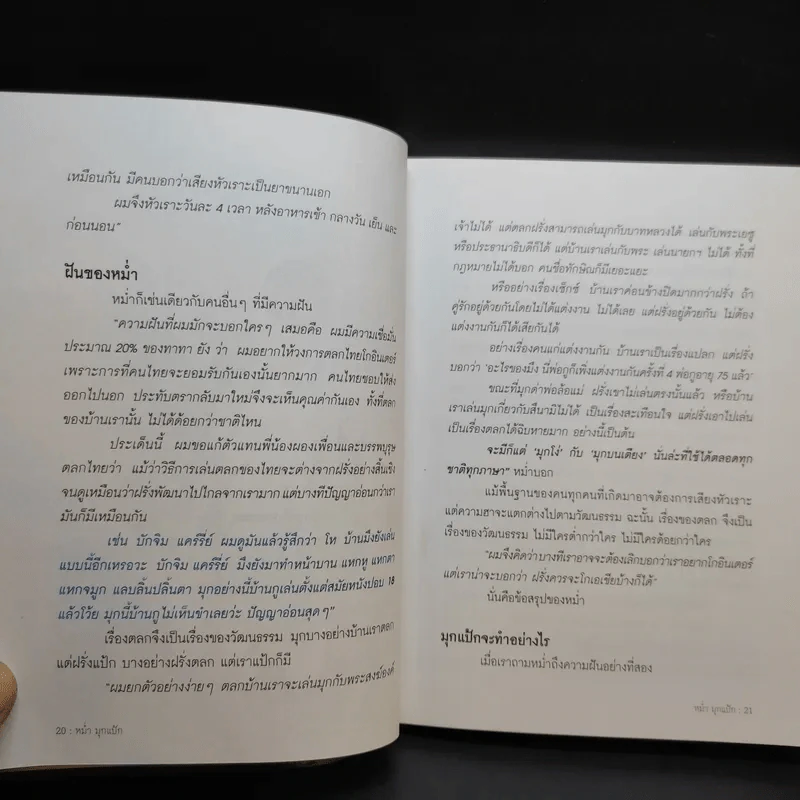 เหมือนกัน มีคนบอกว่าเสียงหัวเราะเป็นยาขนานเอก
ผมจึงหัวเราะวันละ 4 เวลา หลังอาหารเช้า กลางวัน เย็น และ
ก่อนนอน"
ฝันของหม่ำ
หม่ำก็เช่นเดียวกับคนอื่นๆ ที่มีความฝัน
"ความฝันที่ผมมักจะบอกใครๆ เสมอคือ ผมมีความเชื่อมั่น
ประมาณ 20% ของทาทา ยัง ว่า ผมอยากให้วงการตลกไทยโกอินเตอร์
เพราะการที่คนไทยจะยอมรับกันเองนั้นยากมาก คนไทยชอบให้ส่ง
ออกไปนอก ประทับตรากลับมาใหม่จึงจะเห็นคุณค่ากันเอง ทั้งที่ตลก
ของบ้านเรานั้น ไม่ได้ด้อยกว่าชาติไหน
ประเด็นนี้ ผมขอแก้ตัวแทนพี่น้องผองเพื่อนและบรรพบุรุษ
ตลกไทยว่า แม้ว่าวิธีการเล่นตลกของไทยจะต่างจากฝรั่งอย่างสิ้นเชิง
จนดูเหมือนว่าฝรั่งพัฒนาไปไกลจากเรามาก แต่บางทีปัญญาอ่อนกว่าเรา
มันก็มีเหมือนกัน
เช่น บักจิม แคร์รี่ย์ ผมดูมันแล้วรู้สึกว่า โห บ้านมึงยังเล่น
แบบนี้อีกเหรอวะ บักจิม แคร์รี่ย์ มึงยังมาทำหน้าบาน แหกหู แหกตา
แหกจมูก แลบลิ้นปลิ้นตา มุกอย่างนี้บ้านกูเล่นตั้งแต่สมัยหนังปอบ 18
แล้วโว้ย มุกนี้บ้านกูไม่เห็นขำเลยว่ะ ปัญญาอ่อนสุดๆ"
เรื่องตลกจึงเป็นเรื่องของวัฒนธรรม มุกบางอย่างบ้านเราตลก
แต่ฝรั่งแป้ก บางอย่างฝรั่งตลก แต่เราแป้กก็มี
"ผมยกตัวอย่างง่ายๆ ตลกบ้านเราจะเล่นมุกกับพระสงฆ์องค์
20 : หม่ำ มุกแป้ก
เจ้าไม่ได้ แต่ตลกฝรั่งสามารถเล่นมุกกับบาทหลวงได้ เล่นกับพระเยซู
หรือประธานาธิบดีก็ได้ แต่บ้านเราเล่นกับพระ เล่นนายกฯ ไม่ได้ ทั้งที่
กฎหมายไม่ได้บอก คนชื่อทักษิณก็มีเยอะแยะ
หรืออย่างเรื่องเซ็กซ์ บ้านเราค่อนข้างปิดมากกว่าฝรั่ง ถ้า
คู่รักอยู่ด้วยกันโดยไม่ได้แต่งงาน ไม่ได้เลย แต่ฝรั่งอยู่ด้วยกัน ไม่ต้อง
แต่งงานกันก็ได้เสียกันได้
อย่างเรื่องคนแก่แต่งงานกัน บ้านเราเป็นเรื่องแปลก แต่ฝรั่ง
บอกว่า 'อะไรของมึง นี่พ่อกูก็เพิ่งแต่งงานกันครั้งที่ 4 พ่อกูอายุ 75 แล้ว'
ขณะที่มุกด่าพ่อล้อแม่ ฝรั่งเขาไม่เล่นตรงนั้นแล้ว หรือบ้าน
เราเล่นมุกเกี่ยวกับสึนามิไม่ได้ เป็นเรื่องสะเทือนใจ แต่ฝรั่งเอาไปเล่น
เป็นเรื่องตลกได้ฉิบหายมาก อย่างนี้เป็นต้น
จะมีก็แต่ 'มุกโง่' กับ 'มุกบนเตียง' นั่นล่ะที่ใช้ได้ตลอดทุก
ชาติทุกภาษา" หม่ำบอก
แม้พื้นฐานของคนทุกคนที่เกิดมาอาจต้องการเสียงหัวเราะ
แต่ความฮาจะแตกต่างไปตามวัฒนธรรม ฉะนั้น เรื่องของตลก จึงเป็น
เรื่องของวัฒนธรรม ไม่มีใครต่ำกว่าใคร ไม่มีใครด้อยกว่าใคร
"ผมจึงคิดว่าบางทีเราอาจจะต้องเลิกบอกว่าเราอยากโกอินเตอร์
แต่เราน่าจะบอกว่า ฝรั่งควรจะโกเอเชียบ้างก็ได้"
นั่นคือข้อสรุปของหม่ำ
มุกแป้กจะทำอย่างไร
เมื่อเราถามหม่ำถึงความฝันอย่างที่สอง
หม่ำ มุกแป้ก : 21